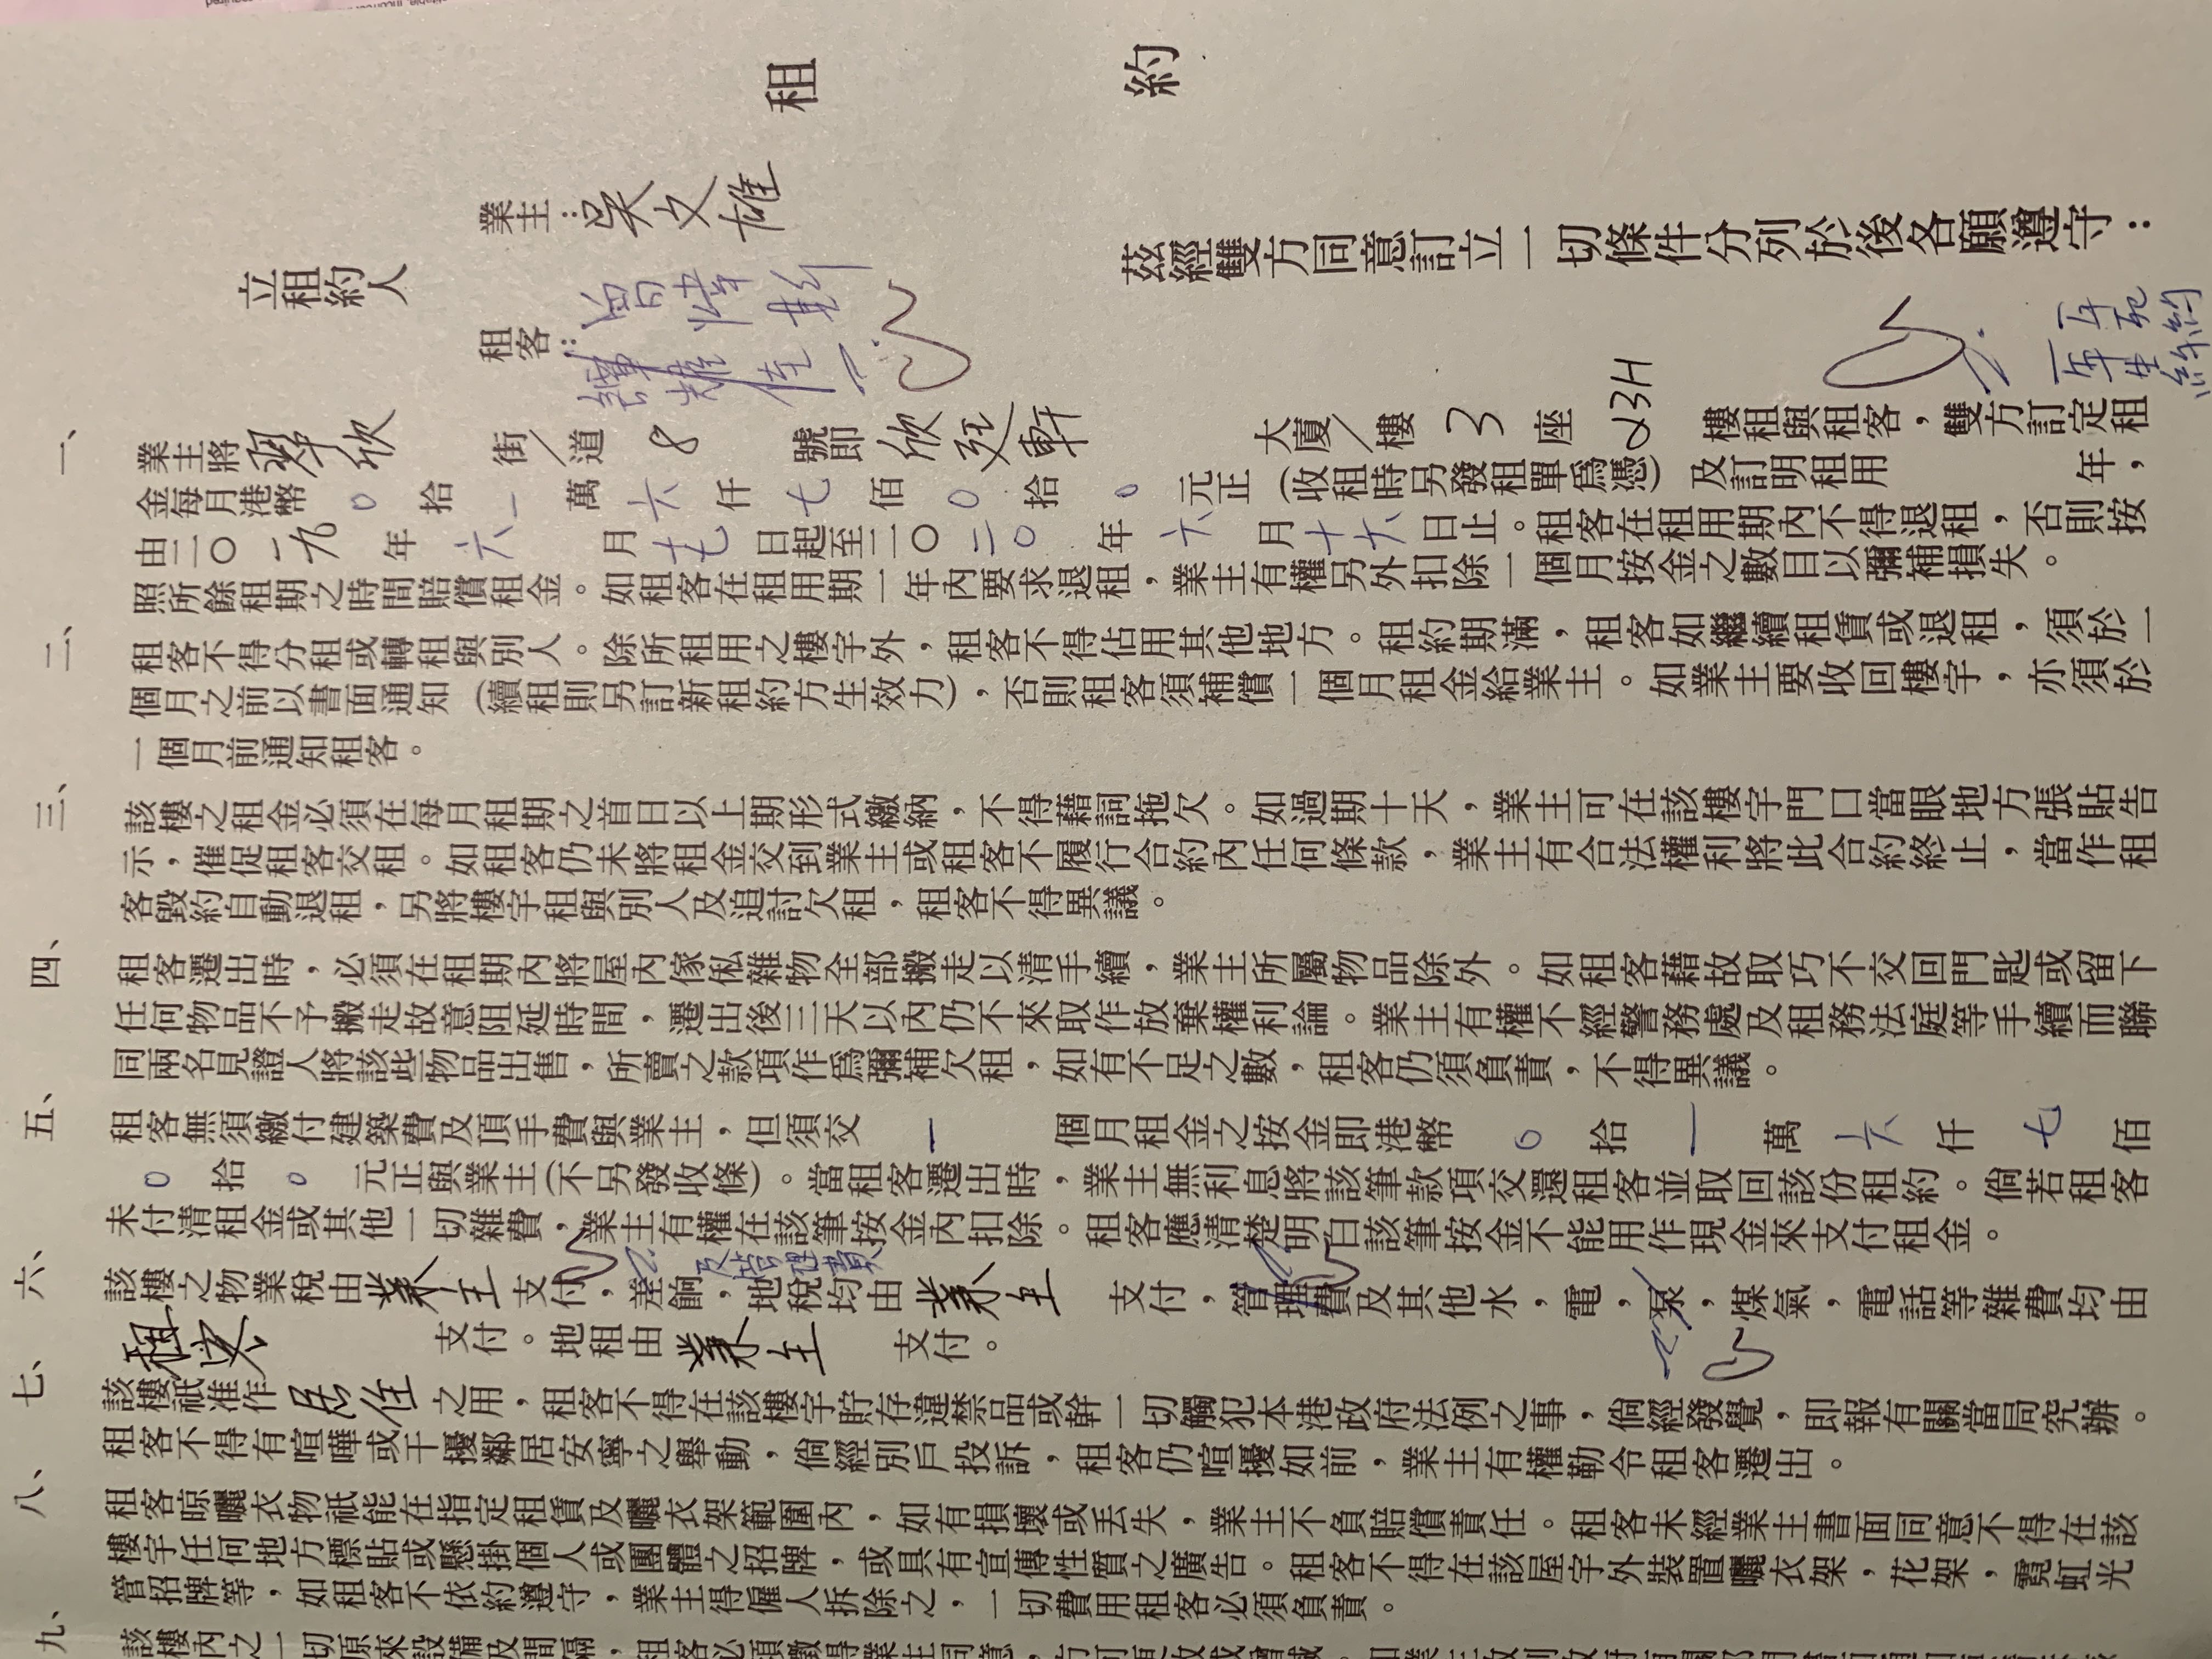 租 約
立租約人
業主：吳文雄
租客：
茲經雙方同意訂立一切條件分列於後各願遵守：
一、業主將翠欣 街／道 8 號即欣廷軒 大廈／樓 3 座 23H 樓租與租客，雙方訂定租
金每月港幣 0 拾 一 萬 六 仟 七 佰 0 拾 0 元正（收租時另發租單爲憑）及訂明租用 年，
一年死 一年生 約
由二〇一九 年 六 月 十七 日起至二〇二0 年 六 月 十六 日止。租客在租用期內不得退租，否則按
照所餘租期之時間賠償租金。如租客在租用期一年內要求退租，業主有權另外扣除一個月按金之數目以彌補損失。
二、租客不得分租或轉租與別人。除所租用之樓宇外，租客不得佔用其他地方。租約期滿，租客如繼續租賃或退租，須於一
個月之前以書面通知（續租則另訂新租約方生效力），否則租客須補償一個月租金給業主。如業主要收回樓宇，亦須於
一個月前通知租客。
三、該樓之租金必須在每月租期之首日以上期形式繳納，不得藉詞拖欠。如過期十天，業主可在該樓宇門口當眼地方張貼告
示，催促租客交租。如租客仍未將租金交到業主或租客不履行合約內任何條款，業主有合法權利將此合約終止，當作租
客毀約自動退租，另將樓宇租與別人及追討欠租，租客不得異議。
四、租客遷出時，必須在租期內將屋內傢俬雜物全部搬走以清手續，業主所屬物品除外。如租客藉故取巧不交回門匙或留下
任何物品不予搬走故意阻延時間，遷出後三天以內仍不來取作放棄權利論。業主有權不經警務處及租務法庭等手續而聯
同兩名見證人將該些物品出售，所賣之款項作爲彌補欠租，如有不足之數，租客仍須負責，不得異議。
五、租客無須繳付建築費及頂手費與業主，但須交 一 個月租金之按金即港幣 0 拾 一 萬 六 仟 七 佰
0 拾 0 元正與業主（不另發收條）。當租客遷出時，業主無利息將該筆款項交還租客並取回該份租約。倘若租客
未付清租金或其他一切雜費，業主有權在該筆按金內扣除。租客應清楚明白該筆按金不能用作現金來支付租金。
及管理費
六、該樓之物業稅由業主 支付，差餉，地稅均由 業主 支付，管理費及其他水，電，泵，煤氣，電話等雜費均由
租客 支付。地租由 業主 支付。
七、該樓祇准作 居住 之用，租客不得在該樓宇貯存違禁品或幹一切觸犯本港政府法例之事，倘經發覺，即報有關當局究辦。
租客不得有喧嘩或干擾鄰居安寧之舉動，倘經別戶投訴，租客仍喧擾如前，業主有權勒令租客遷出。
八、租客晾曬衣物祇能在指定租賃及曬衣架範圍內，如有損壞或丟失，業主不負賠償責任。租客未經業主書面同意不得在該
樓宇任何地方標貼或懸掛個人或團體之招牌，或具有宣傳性質之廣告。租客不得在該屋宇外裝置曬衣架，花架，霓虹光
管招牌等，如租客不依約遵守，業主得僱人拆除之，一切費用租客必須負責。
九、該樓內之一切原來設備及間隔，租客必須徵得業主同意，方可更改或增減。